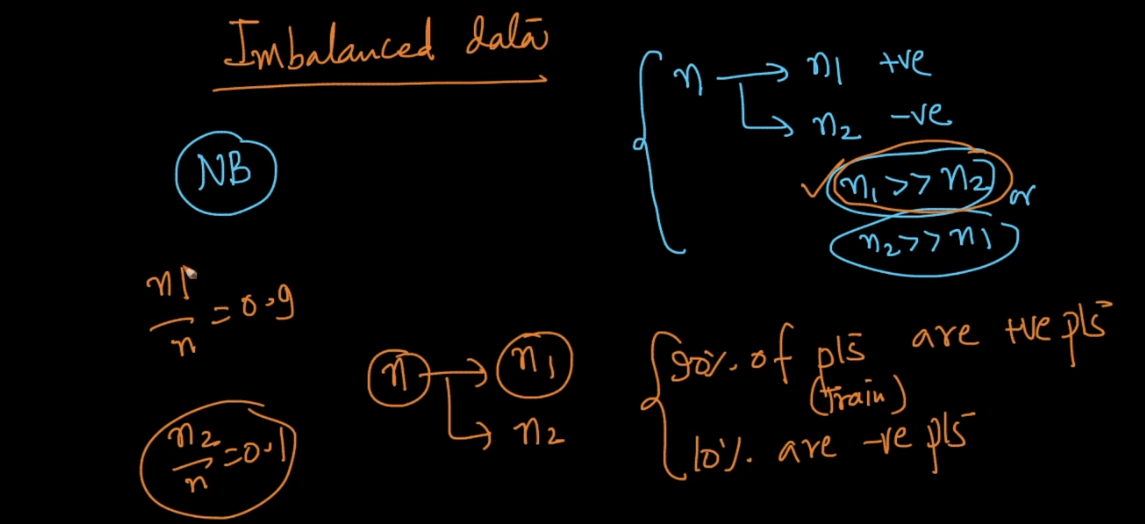 Imbalanced data
n → n1 +ve
→ n2 -ve
NB
✓ n1 >> n2 or
n2 >> n1
n1/n = 0.9
n → n1
→ n2
90% of pts are +ve pts
(Train)
10% are -ve pts
n2/n = 0.1